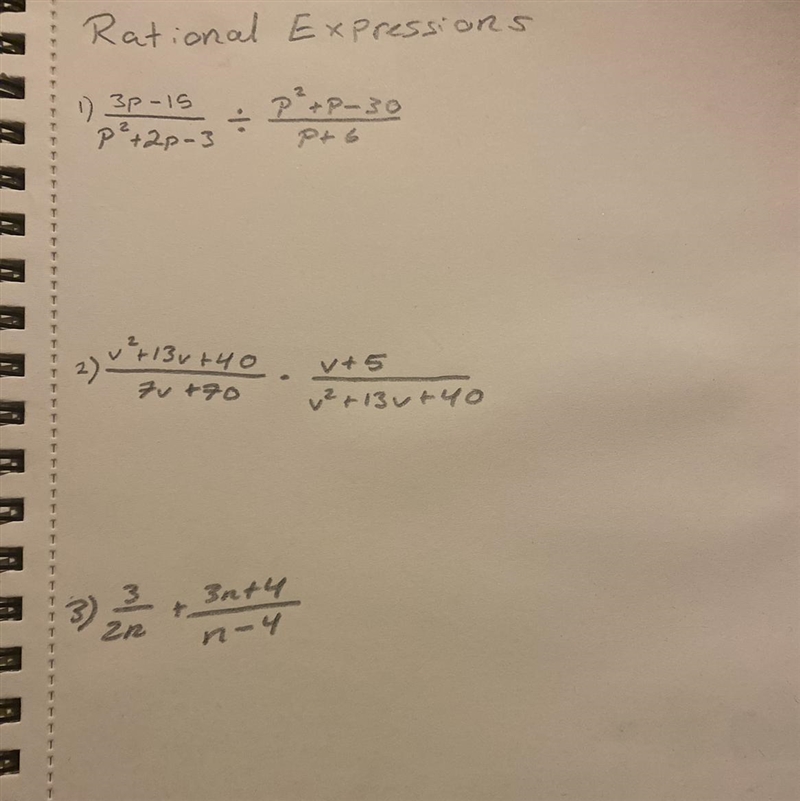 Rational Expressions
1) 3p-15 / p²+2p-3 ÷ p²+p-30 / p+6
2) v²+13v+40 / 7v+70 · v+5 / v²+13v+40
3) 3 / 2n + 3n+4 / n-4